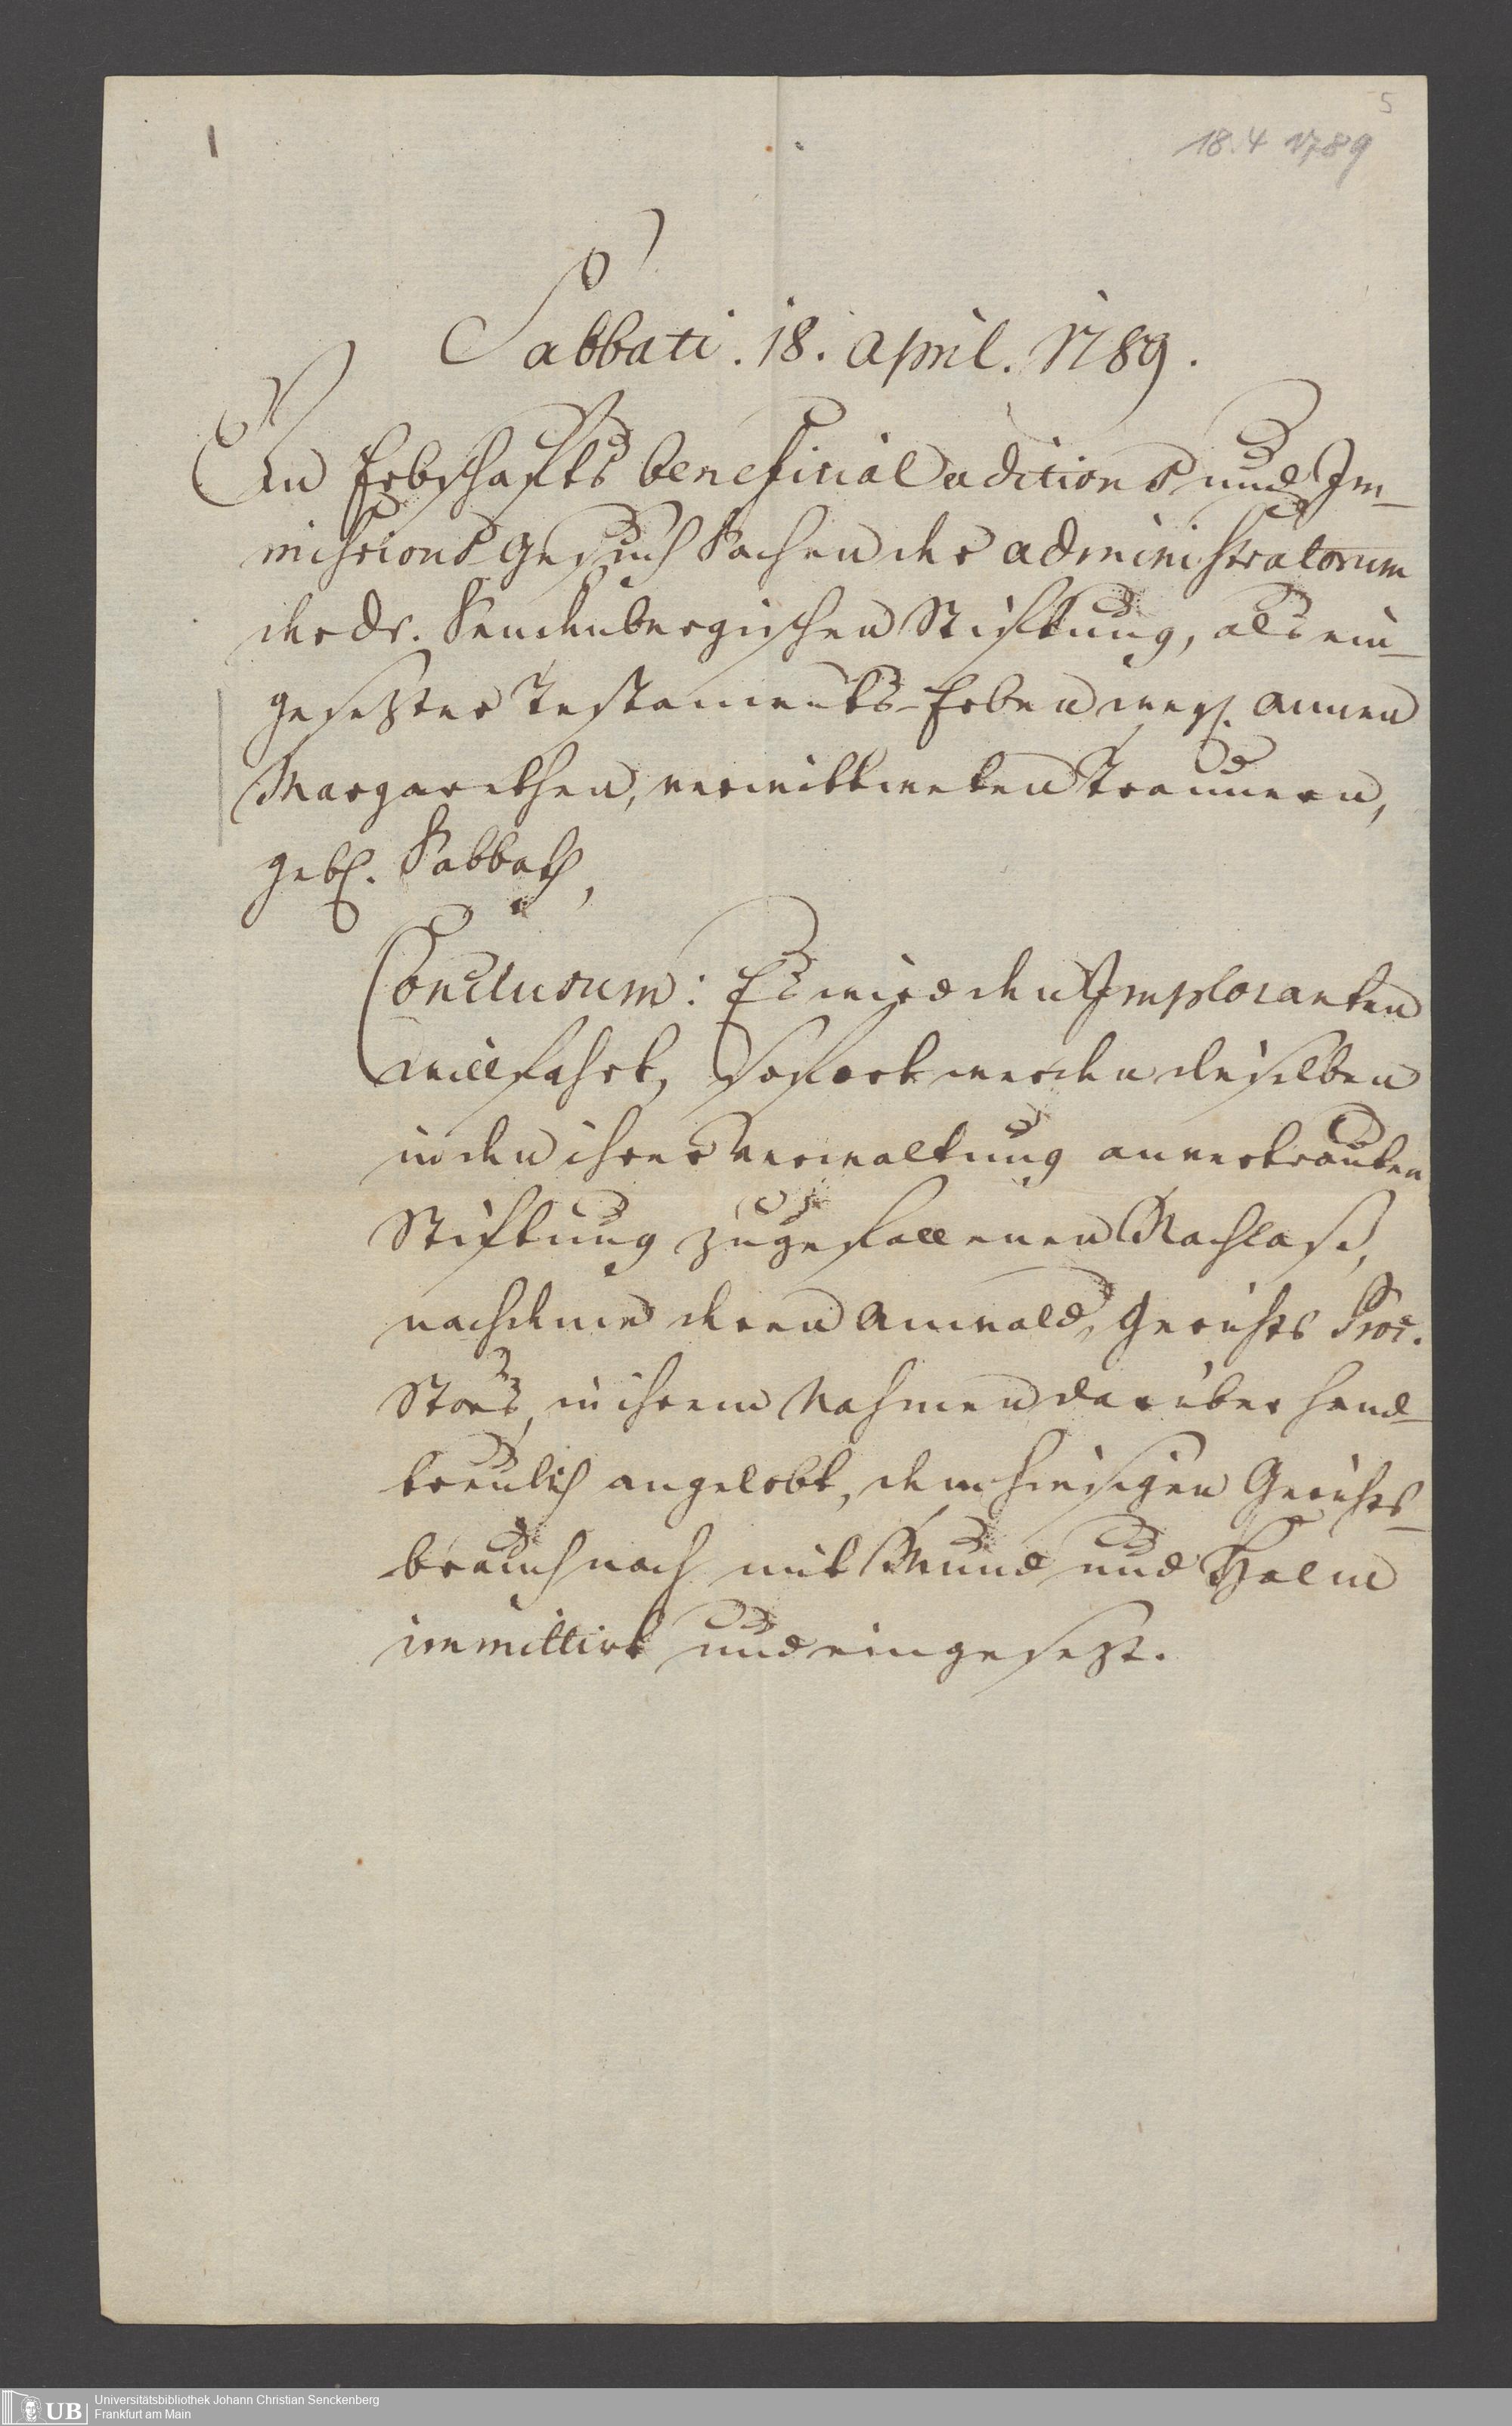 5
18.4 1789
Sabbati. 18. April. 1789.
In Erbschafts beneficial aditions und Im-
missions Gesuch Sachen der Administratorum
der Dr. Senckenbergischen Stiftung, als ein-
gesetzter Testaments-Erben weyl. Annen
Margarethen, verwittweten Trauuern,
gebl. Sabbath,
Conclusum: Es wird den Imploranten
willfahrt, sofort werden dieselben
in den ihrer Verwaltung anvertrauten
Stiftung zugefallenen Nachlaß,
nachdeme deren Anwald, Gerichts Proc.
in ihrem Nahmen darüber hand-
treulich angelobt, dem hiesigen Gerichts-
brauch nach mit Mund und Halm
immittirt und eingesezt.
UB
Universitätsbibliothek Johann Christian Senckenberg
Frankfurt am Main